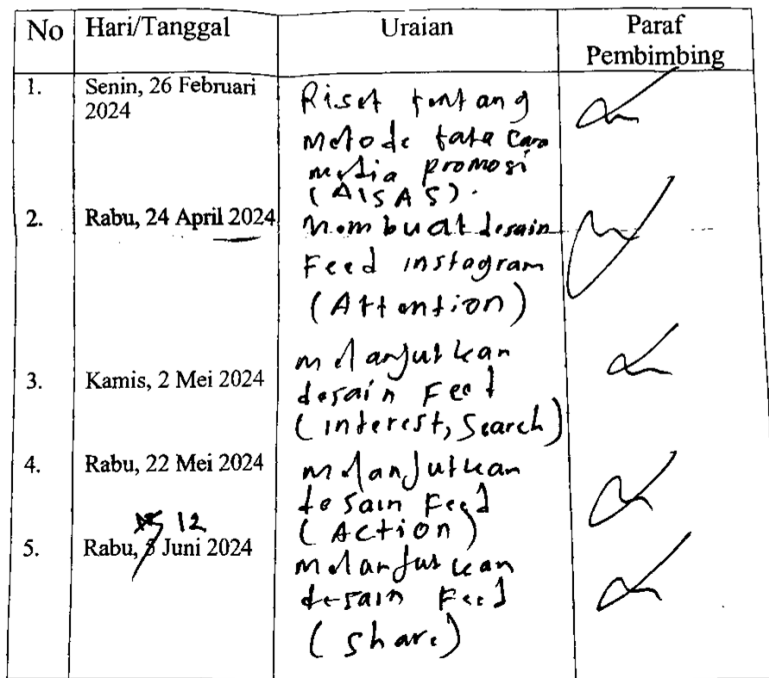 No Hari/Tanggal Uraian Paraf
Pembimbing
1. Senin, 26 Februari
2024
Riset tentang
Metode tata cara
media promosi
(AISAS).
2. Rabu, 24 April 2024
Membuat desain
Feed instagram
(Attention)
3. Kamis, 2 Mei 2024
melanjutkan
desain Feed
(interest, Search)
4. Rabu, 22 Mei 2024
melanjutkan
desain Feed
(Action)
12
5. Rabu, 5 Juni 2024
melanjutkan
desain Feed
(share)